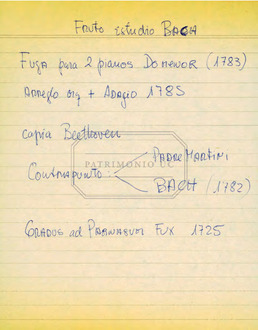 Fruto estudio BACH
Fuga para 2 pianos Do menor (1783)
Arreglo org + Adagio 1785
copia Beethoven
PADRE MARTINI
PATRIMONIO UC
Contrapunto:
BACH (1782)
GRADUS ad PARNASUM FUX 1725